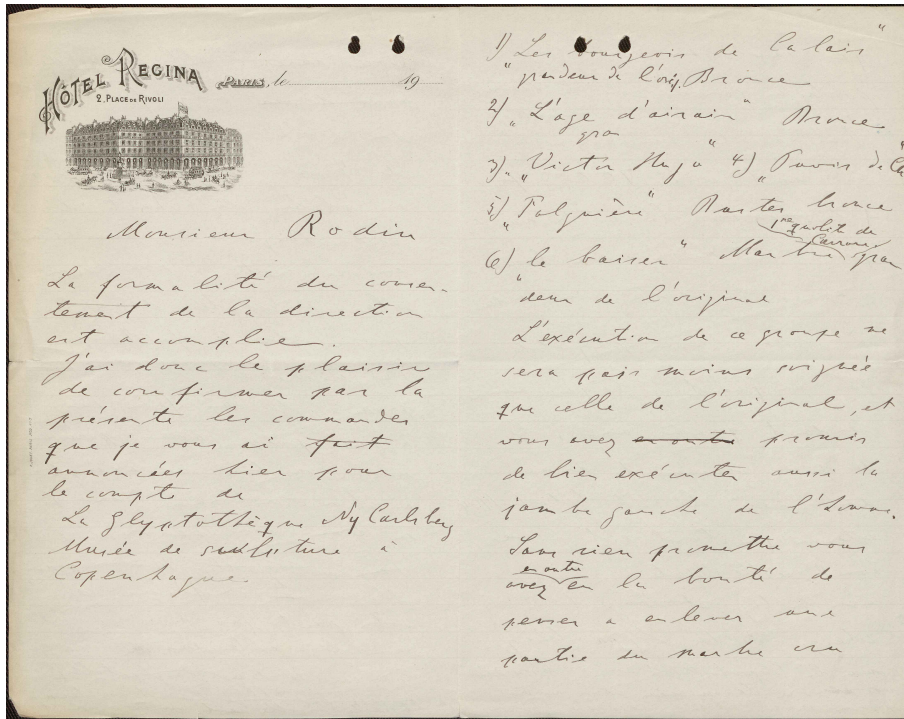 HÔTEL REGINA
2, PLACE DE RIVOLI
PARIS, le 19
Monsieur Rodin
La formalité du consen-
tement de la direction
est accomplie.
J'ai donc le plaisir
de confirmer par la
présente les commandes
que je vous ai fait
annoncées hier pour
le compte de
La Glyptothèque Ny Carlsberg
Musée de sculpture à
Copenhague.
1) "Les bourgeois de Calais"
grandeur de l'orig. Bronce
2) "L'age d'airain" Bronce
gran
3) "Victor Hugo" 4) "Puvis de Ch
5) "Falguière" Bustes bronce
1re qualité de
Carrare
6) "le baiser" Marbre gran
deur de l'original
L'exécution de ce groupe ne
sera pais moins soignée
que celle de l'original, et
vous avez en outre promis
de bien exécuter aussi la
jambe gauche de l'homme.
Sans rien promettre vous
en outre
avez eu la bonté de
penser a enlever une
partie du marbre cru